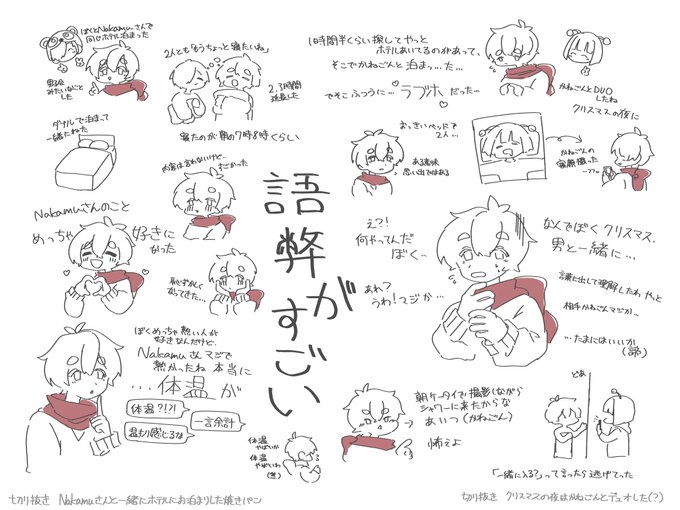 ぼくとNakamuさんで
同じホテル泊まった
男子会
みたいなこと
した
ダブルで泊まって
一緒にねた
2人とも「もうちょっと寝たいね」
2、3時間
延長した
寝たのが朝の7時8時くらい
内容は言わないけど…
だった
Nakamuさんのこと
めっちゃ 好きに
なった
恥ずかしく
なってきた…
ぼくめっちゃ熱い人が
好きなんだけど、
Nakamuさんマジで
熱かったね 本当に
…体温が
体温?!?!
一言余計
温もり感じるな
体温
やばいか
体温
やばいわ
語弊がすごい
1時間半くらい探してやっと
ホテルあいてるのがあって、
そこでかねごんと泊まっ…た…
でそこふつうに…ラブホだった…
かねごんとDUO
したね
クリスマスの夜に
おっきいベッドで
2人…
ある意味
思い出ではある
かねごんの
寝顔撮った
え?!
何やってんだ
ぼく…
あれ?
うわ!マジか…
なんでぼくクリスマス、
男と一緒に…
言葉に出して理解したわ やっと
相手かねごんマジか…
…たまにはいいか
(諦)
朝ケータイで撮影しながら
シャワーに来たからな
あいつ(かねごん)
怖えよ
どあ
「一緒に入る?」って言ったら逃げてった
切り抜き Nakamuさんと一緒にホテルにお泊まりした焼きパン
切り抜き クリスマスの夜はかねごんとデュオした(?)